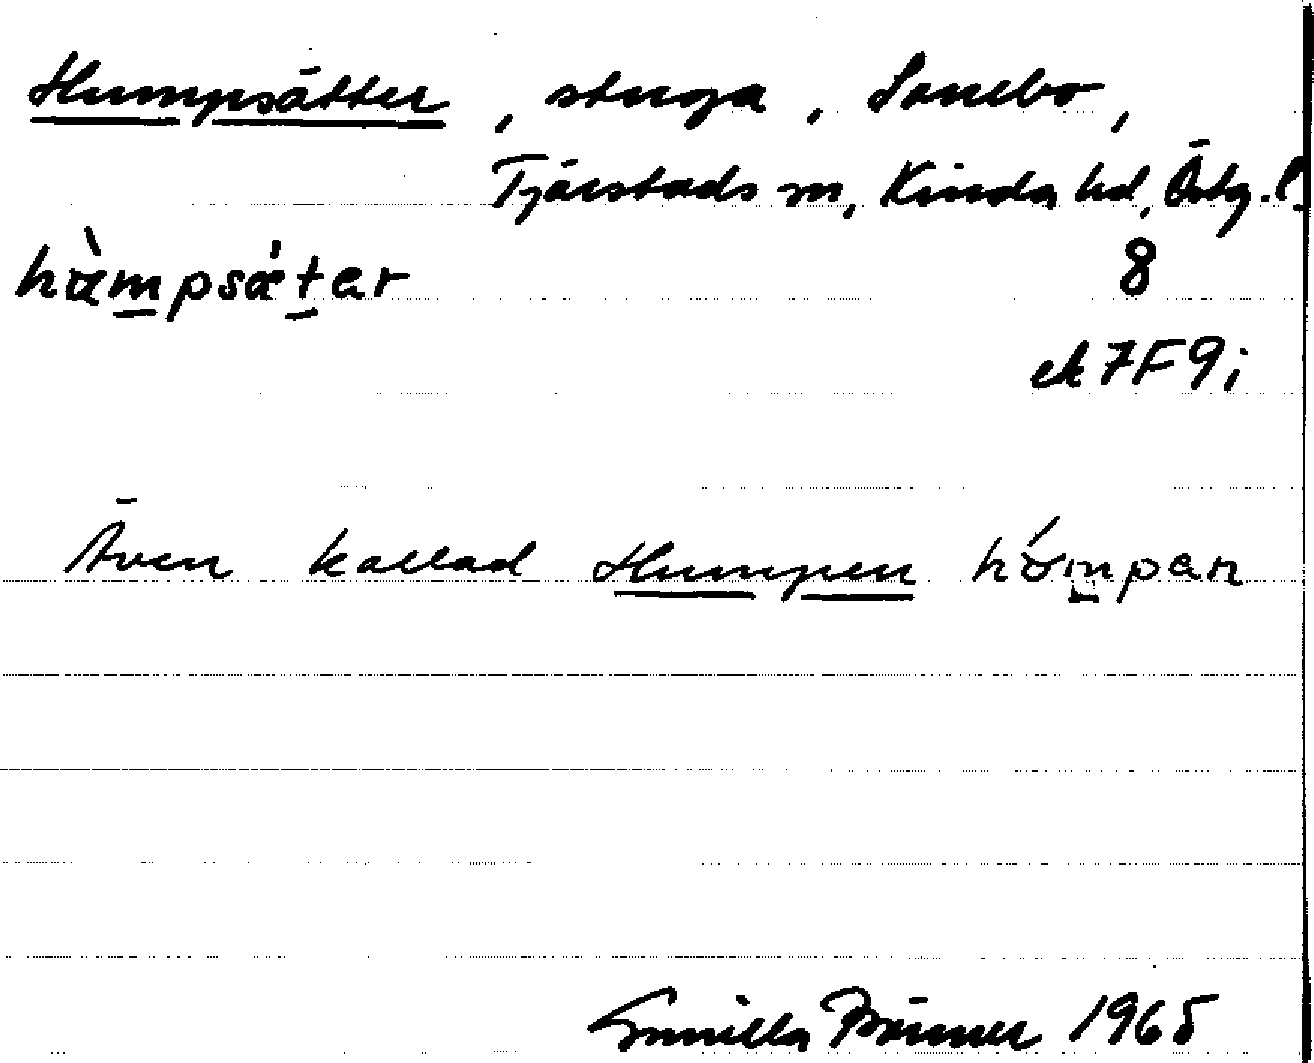 Humpsätter, stuga, Sonebo,
Tjärstads sn, Kinda hd, Östg. l.
hàmpsá̈tər 8
ek 7F9i
Även kallad Humpen hómpən
Gunilla 1965